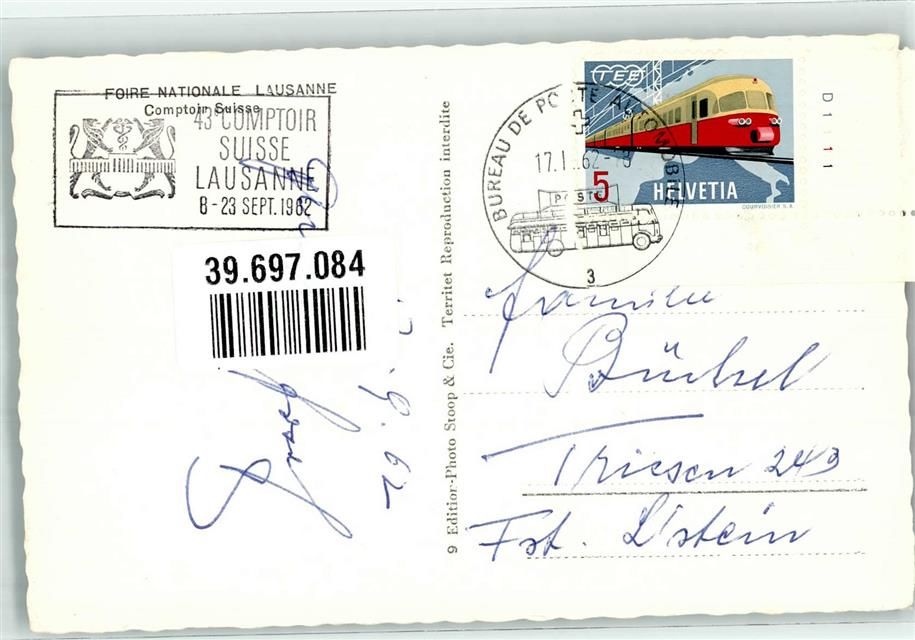 FOIRE NATIONALE LAUSANNE
Comptoir Suisse
43e COMPTOIR
SUISSE
LAUSANNE
8-23 SEPT.1962
39.697.084
BUREAU DE POSTE AUTOMOBILE
17.I
62-
POSTE
3
TEE
5
HELVETIA
COURVOISIER S.A.
D1111
9 Edition-Photo Stoop & Cie. Territet Reproduction interdite
Familie
Büchel
Triesen 249
Fst. L'stein
Josef
9. 62